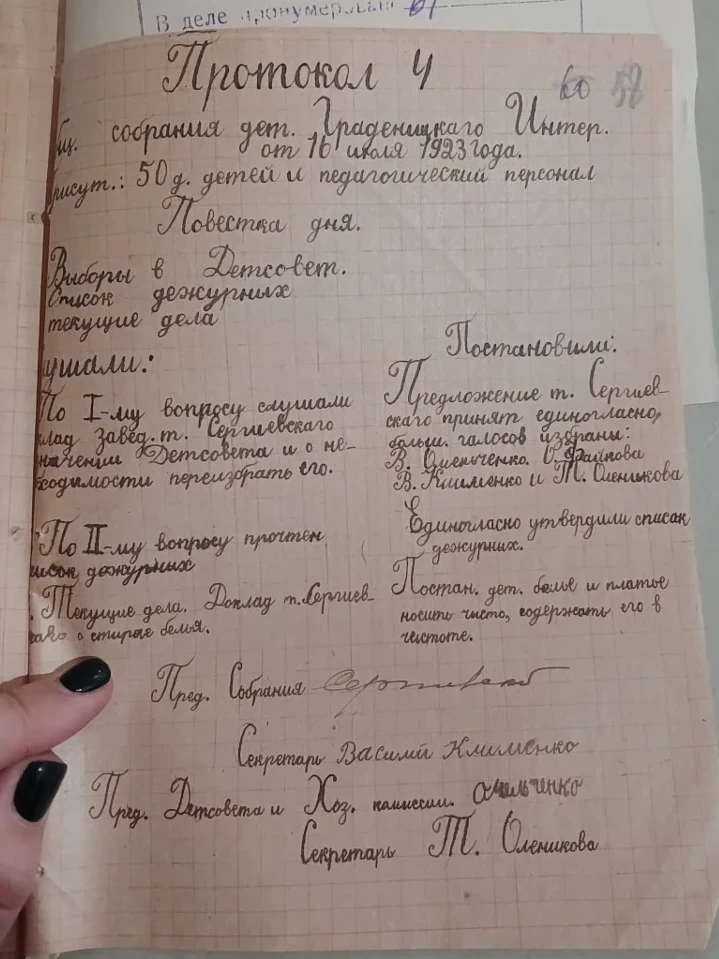 В деле пронумерован 61
60 58
Протокол 4
бщ. собрания дет. Граденицкаго Интер.
от 16 июля 1923 года.
рисут.: 50 д. детей и педагогический персонал
Повестка дня.
Выборы в Детсовет.
Список дежурных
текущие дела
ушали:
По I-му вопросу слушали
клад завед. т. Сергиевскаго
значении Детсовета и о не-
бходимости переизбрать его.
По II-му вопросу прочтен
исок дежурных
. Текущие дела. Доклад т. Сергиев-
скаго о стирке белья.
Постановили:
Предложение т. Сергиев-
скаго принят единогласно,
больш. галосов избраны:
В. Омельченко. Файнова
В. Клименко и Т. Оленикова
Единогласно утвердили список
дежурных.
Постан. дет. белье и платье
носить чисто, содержать его в
чистоте.
Пред. Собрания Сергиевский
Секретарь Василий Клименко
Пред. Детсовета и Хоз. комиссии. Омельченко
Секретарь Т. Оленикова